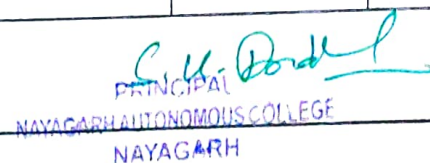 PRINCIPAL
NAYAGARH AUTONOMOUS COLLEGE
NAYAGARH